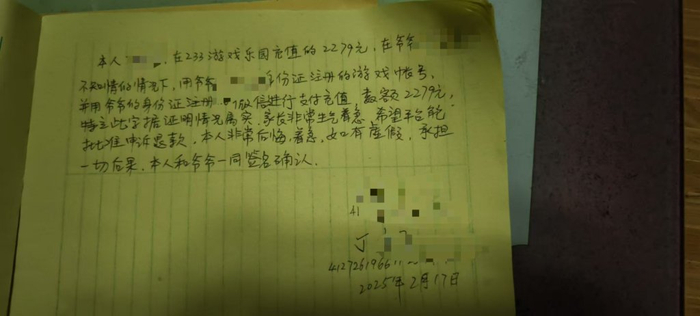 本人，在233游戏乐园充值的2279元，在爷爷
不知情的情况下，用爷爷身份证注册的游戏帐号，
并用爷爷的身份证注册微信进行支付充值，数额2279元，
特立此字据证明情况属实，家长非常生气着急，希望平台能
批准申诉退款，本人非常后悔，着急，如有虚假，承担
一切后果，本人和爷爷一同签名确认。
41
丁
4127261966
2025年2月17日